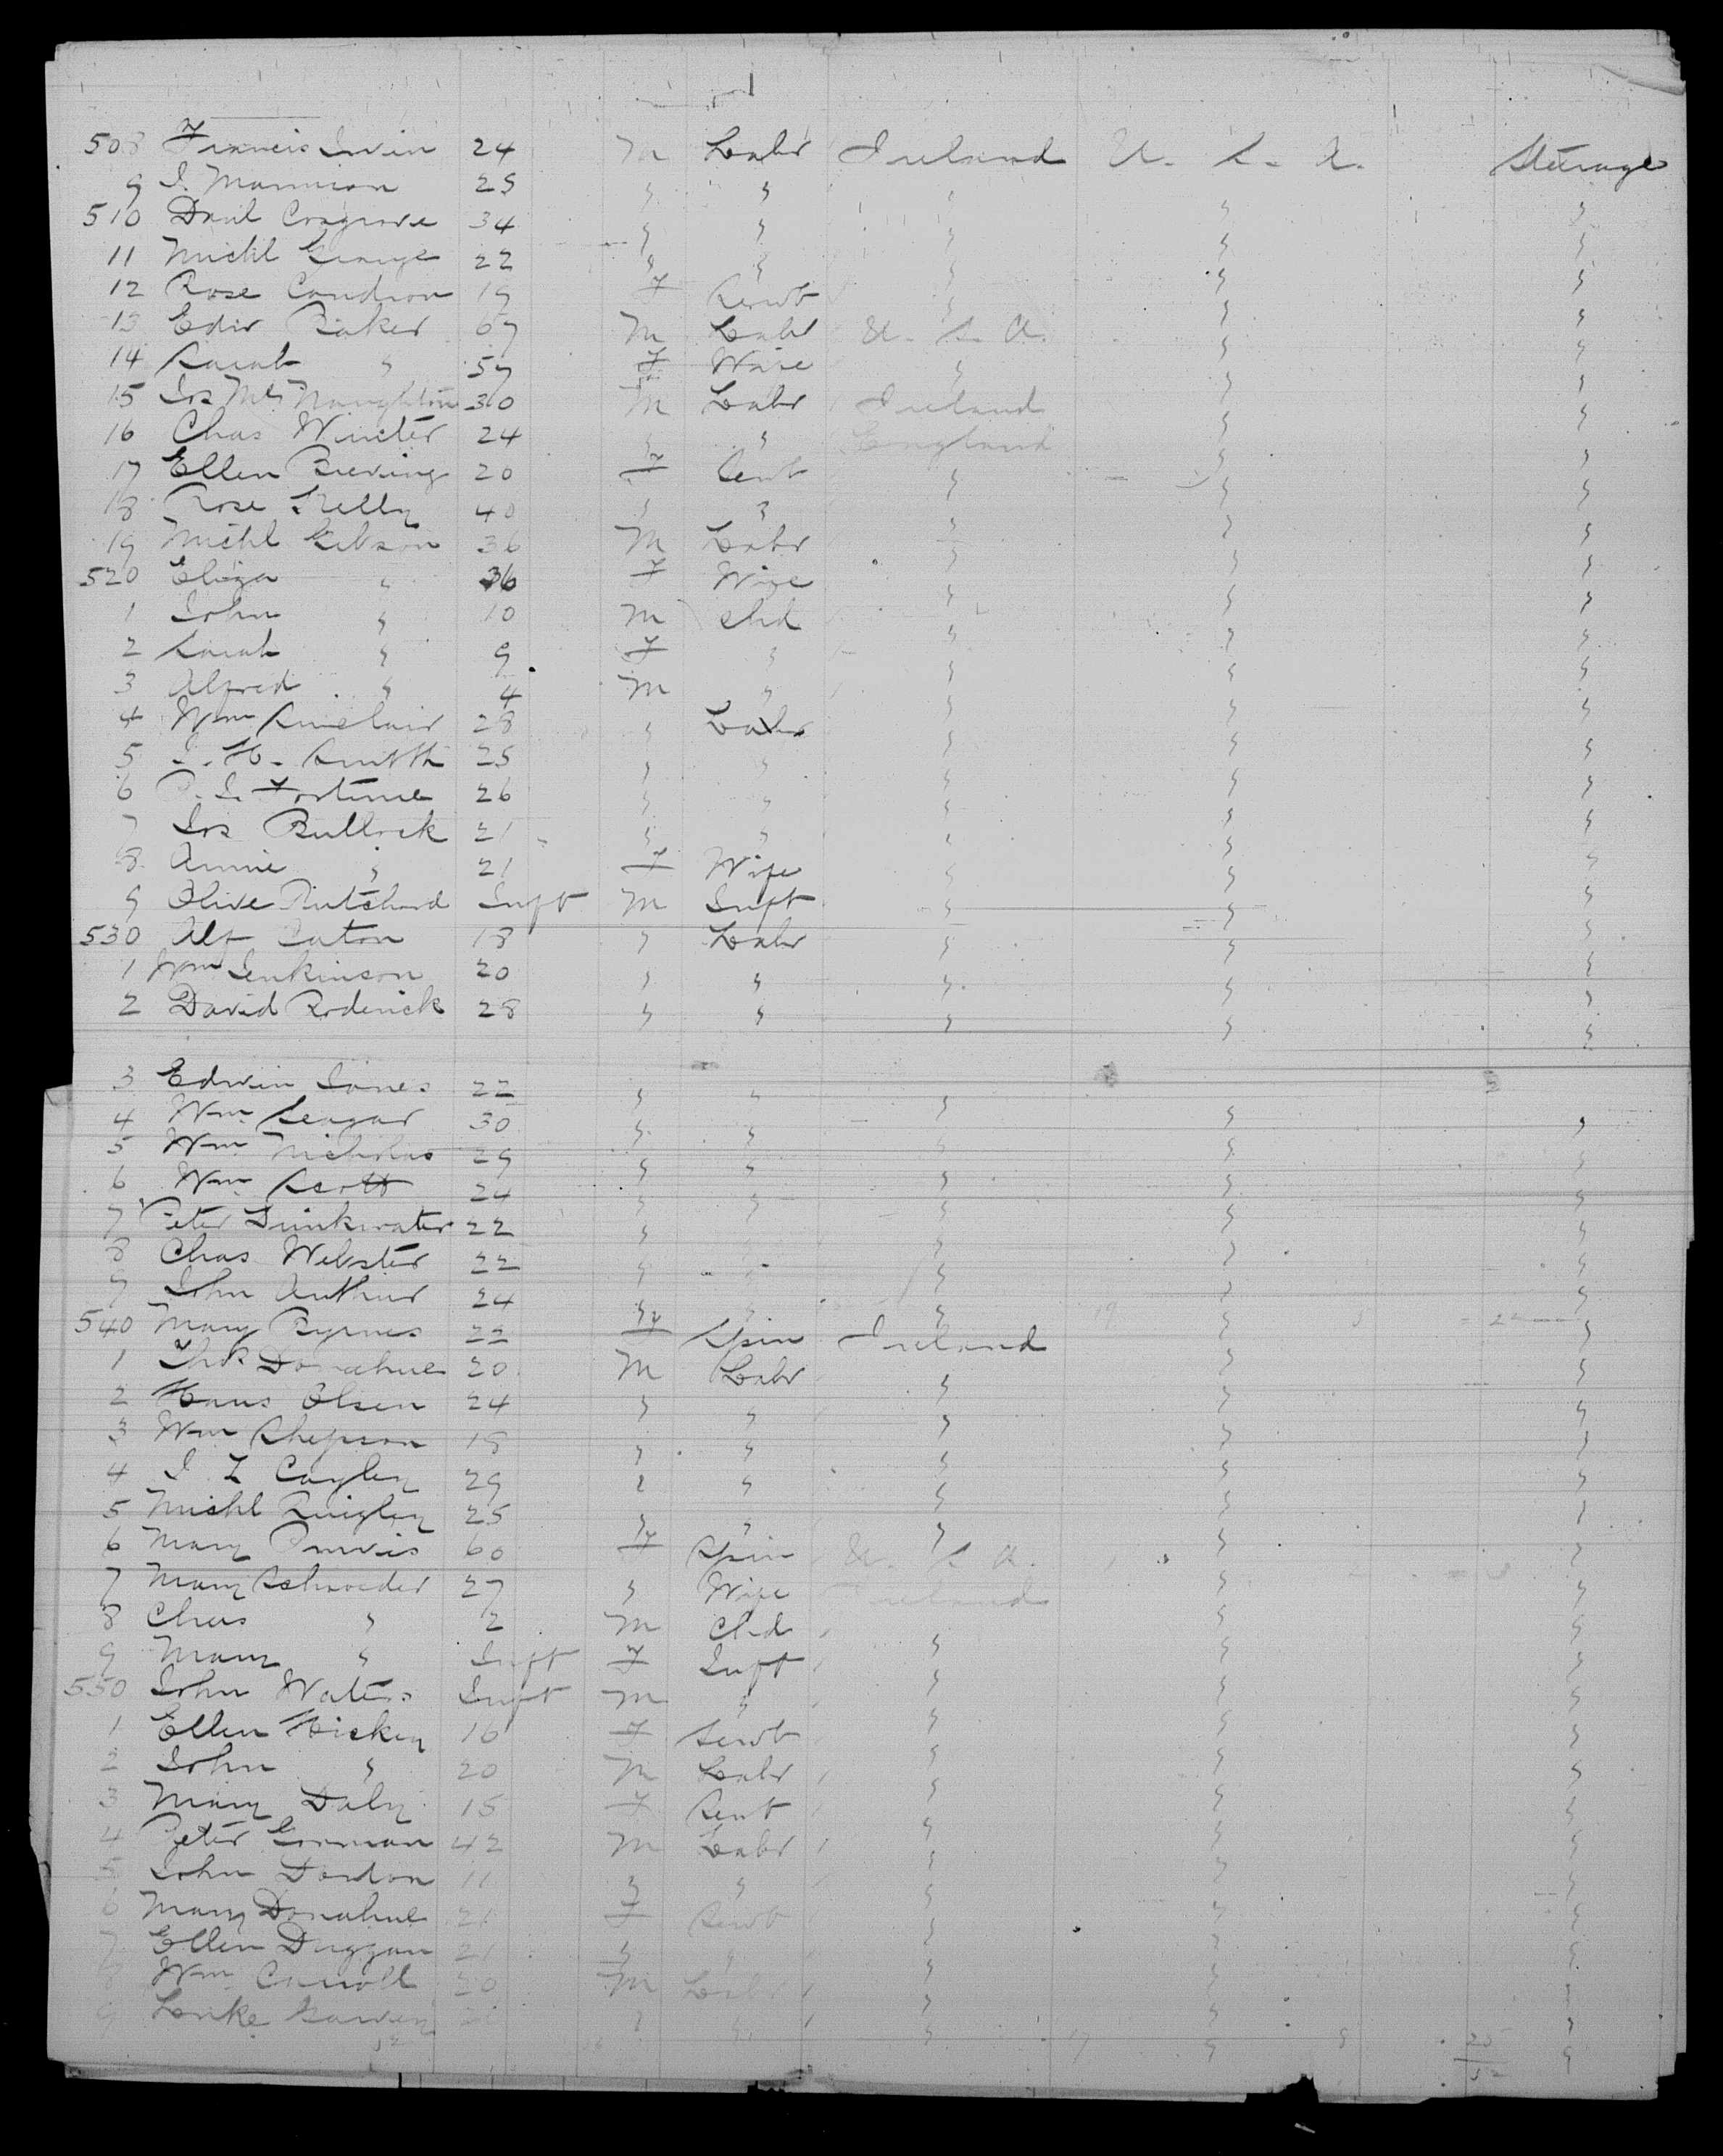 508 Francis Irvin 24 M Labr Ireland U. S. A. Steerage
9 J. Mannion 25 " " " " "
510 Danl Cosgrove 34 " " " " "
11 Michl 22 " " " " "
12 Rose Condron 19 F Servt " " "
13 Edw Baker 67 M Labr U. S. A. " "
14 Sarah " 57 F Wife " " "
15 Jos McNaughton 30 M Labr Ireland " "
16 Chas Winter 24 " " England " "
17 Ellen 20 F Servt " " "
18 Rose Kelly 40 " " " " "
19 Michl Gibson 36 M Labr " " "
520 Eliza " 36 F Wife " " "
1 John " 10 M chd " " "
2 Sarah " 9 F " " " "
3 Alfred " 4 M " " " "
4 Wm Sinclair 28 " Labr " " "
5 J. H. Smith 25 " " " " "
6 P. J. Fortune 26 " " " " "
7 Jos Bullock 21 " " " " "
8 Annie " 21 F Wife " " "
9 Olive Pritchard Inft M Inft " " "
530 Alf Caton 18 " Labr " " "
1 Wm Jenkinson 20 " " " " "
2 David Roderick 28 " " " " "
3 Edwin Jones 22 " " " " "
4 Wm Seagar 30 " " " " "
5 Wm Nicholas 29 " " " " "
6 Wm Scott 24 " " " " "
7 Peter Drinkwater 22 " " " " "
8 Chas Webster 22 " " " " "
9 John Arthur 24 " " " " "
540 Mary Byrnes 22 F Spin Ireland " "
1 Thos Donahue 20 M Labr " " "
2 Hans Olsen 24 " " " " "
3 Wm Shepson 19 " " " " "
4 J. L Cayley 29 " " " " "
5 Michl Quigley 25 " " " " "
6 Mary Purvis 60 F Spin U. S. A. " "
7 Mary Schroeder 27 " Wife Ireland " "
8 Chas " 2 M Chd " " "
9 Mary " Inft F Inft " " "
550 John Waters Inft M " " " "
1 Ellen Hickey 16 F Servt " " "
2 John " 20 M Labr " " "
3 Mary Daly 15 F Servt " " "
4 Peter Gorman 42 M Labr " " "
5 John Dordon 11 " " " " "
6 Mary Donahue 21 F Servt " " "
7 Ellen Duggan 21 " " " " "
8 Wm Carroll 20 M Labr " " "
9 Luke " " " " "